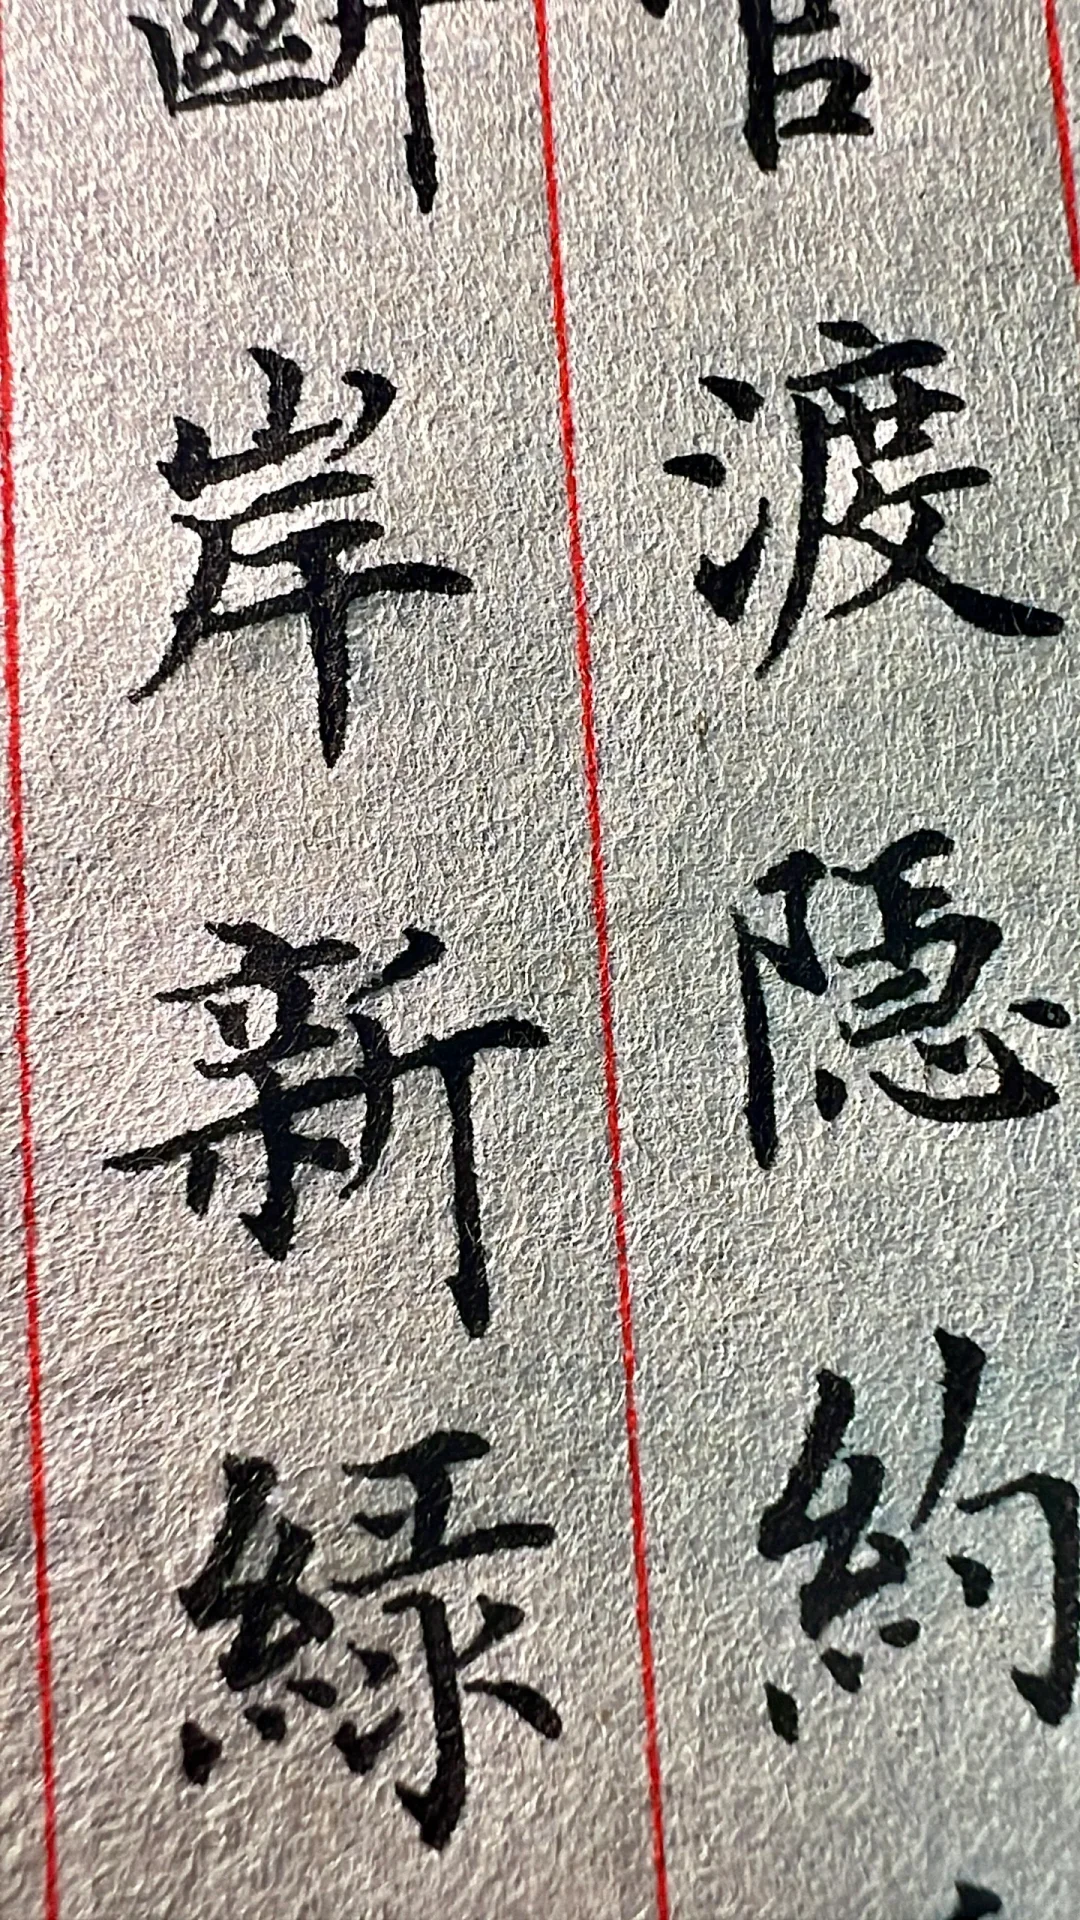 渡隱約
斷岸新綠